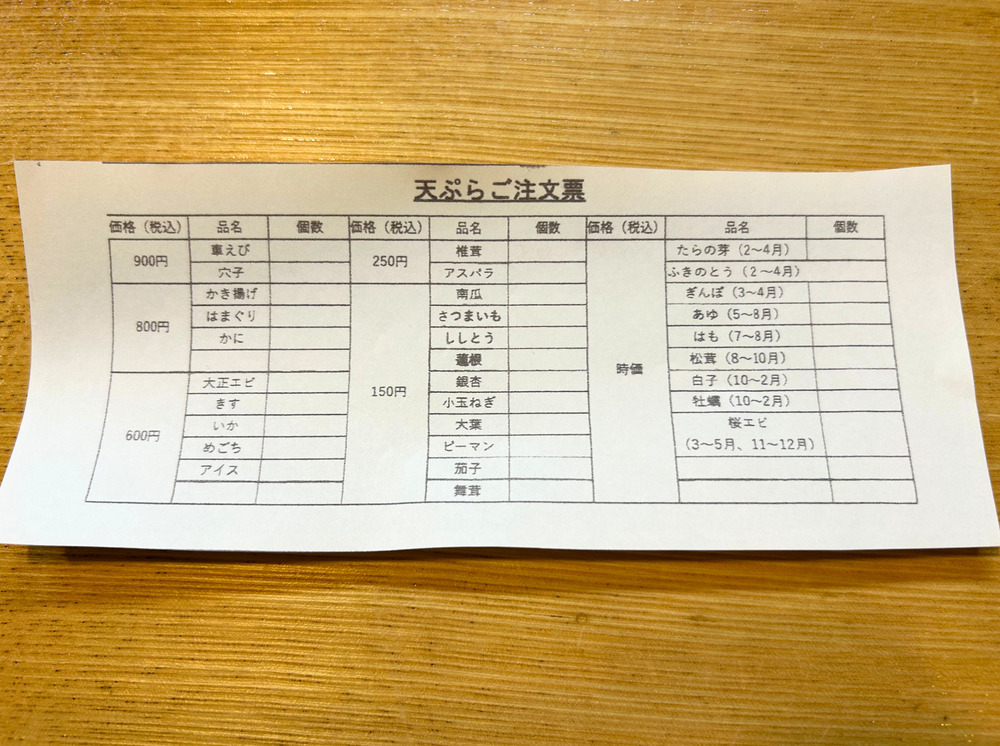 天ぷらご注文票
価格（税込） 品名 個数 価格（税込） 品名 個数 価格（税込） 品名 個数
900円 車えび 250円 椎茸 時価 たらの芽（2～4月）
穴子 アスパラ ふきのとう（2～4月）
800円 かき揚げ 150円 南瓜 ぎんぽ（3～4月）
はまぐり さつまいも あゆ（5～8月）
かに ししとう はも（7～8月）
蓮根 松茸（8～10月）
600円 大正エビ 銀杏 白子（10～2月）
きす 小玉ねぎ 牡蠣（10～2月）
いか 大葉 桜エビ
めごち ピーマン （3～5月、11～12月）
アイス 茄子
舞茸